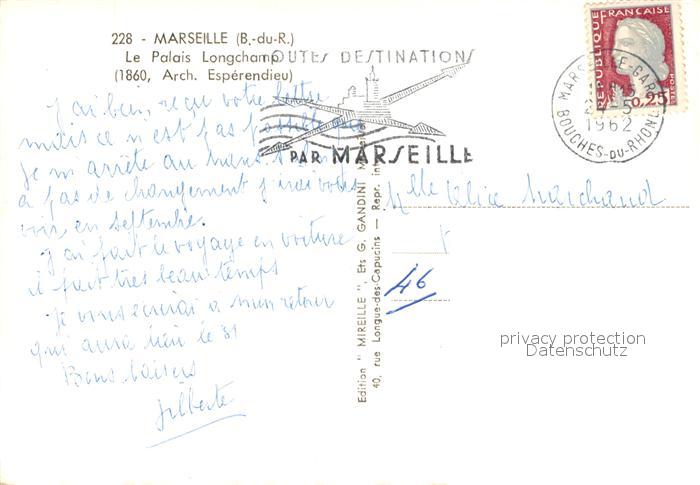 228 - MARSEILLE (B.-du-R.)
Le Palais Longchamp
(1860, Arch. Espérendieu)
TOUTES DESTINATIONS
PAR MARSEILLE
REPUBLIQUE FRANÇAISE
0,25
MARSEILLE-GARE
1962
BOUCHES-DU-RHONE
J'ai bien reçu votre lettre
mais ce n'est pas possible que
je m'arrête au mans
a pas de changement j'irai vous
voir en septembre.
J'ai fait le voyage en voiture
il fait très beau temps
Je vous écrirai à mon retour
qui aura lieu le 31
Bons baisers
Gilberte
Edition " MIREILLE ", Ets G. GANDINI
40, rue Longue-des-Capucins — Repr. int
Mlle Alice Marchand
46
privacy protection
Datenschutz